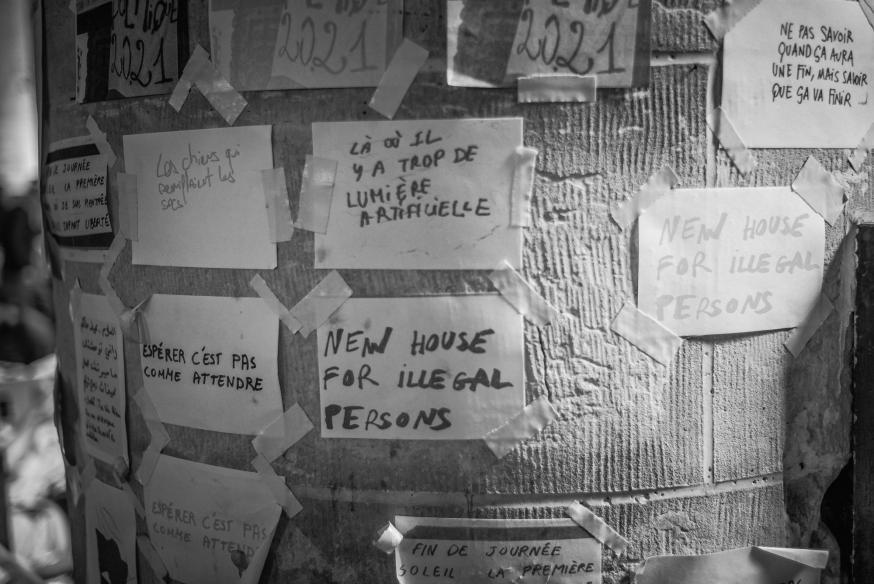 2021
2021
2021
NE PAS SAVOIR
QUAND ÇA AURA
UNE FIN, MAIS SAVOIR
QUE ÇA VA FINIR
FIN DE JOURNÉE
LA PREMIÈRE
OÙ JE SUIS
LIBERTÉ
Les chiens qui
remplaient les
sacs
LÀ OÙ IL
Y A TROP DE
LUMIÈRE
ARTIFICIELLE
NEW HOUSE
FOR ILLEGAL
PERSONS
ESPÉRER C'EST PAS
COMME ATTENDRE
NEW HOUSE
FOR ILLEGAL
PERSONS
ESPÉRER C'EST PAS
COMME ATTENDRE
FIN DE JOURNÉE
SOLEIL LA PREMIÈRE